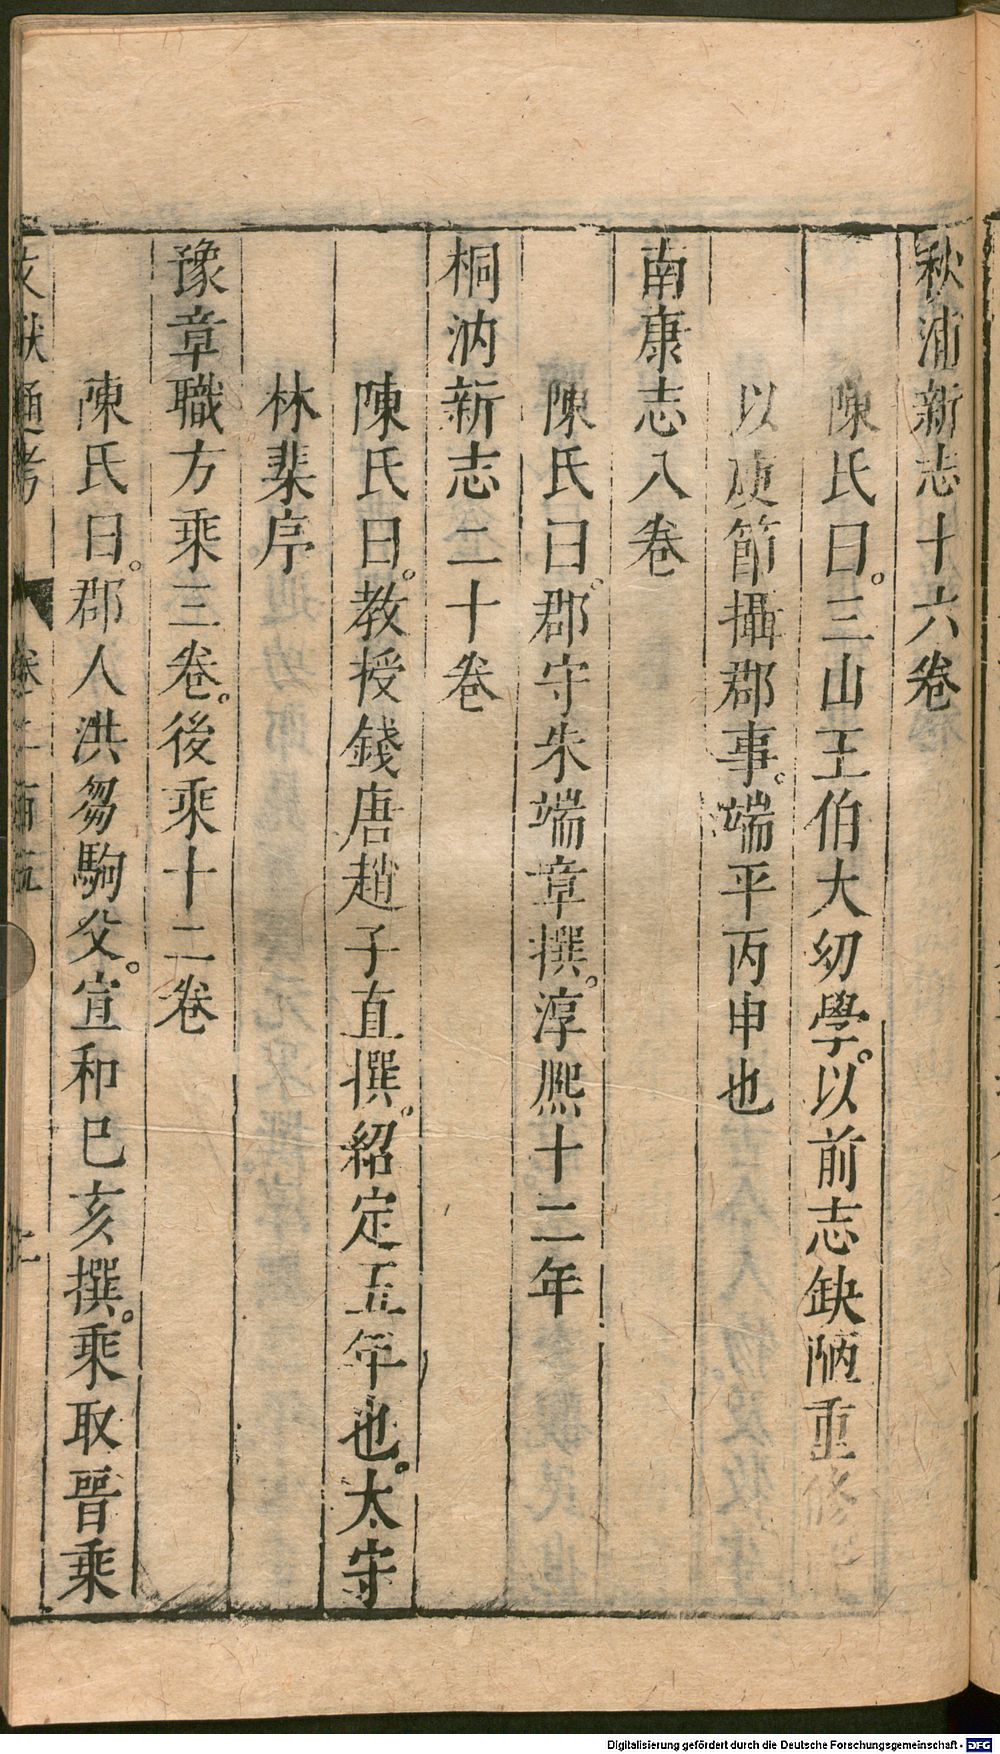 秋浦新志十六卷
陳氏曰。三山王伯大幼學。以前志缺陋重修
以庾節攝郡事。端平丙申也
南康志八卷
陳氏曰。郡守朱端章撰。淳熙十二年
桐汭新志二十卷
陳氏曰。教授錢唐趙子直撰。紹定五年也。太守
林棐序
豫章職方乘三卷。後乘十二卷
陳氏曰。郡人洪芻駒父。宣和己亥撰。乘取晉乘
文獻通考
Digitalisierung gefördert durch die Deutsche Forschungsgemeinschaft - DFG